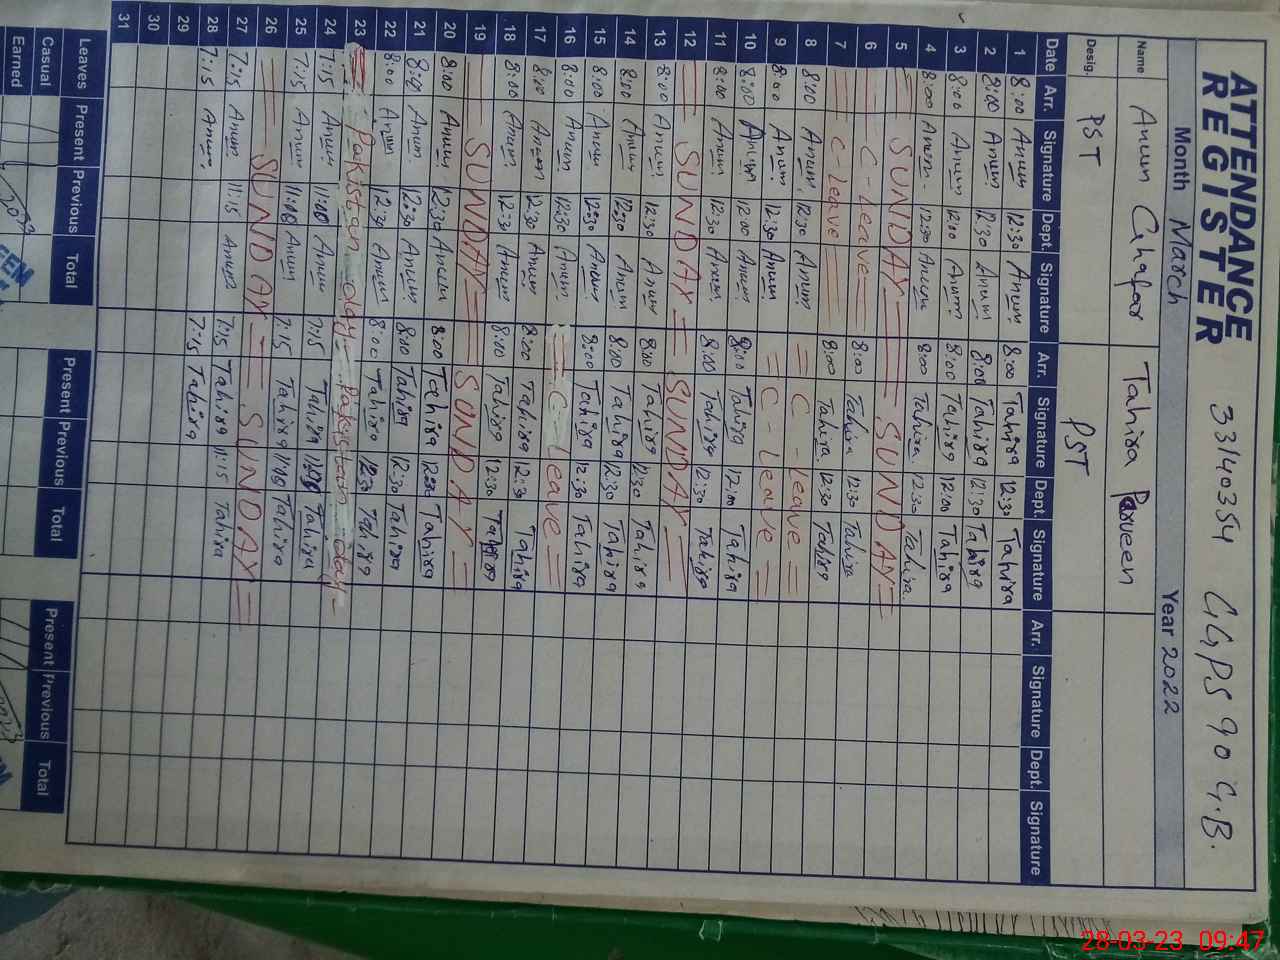 ATTENDANCE REGISTER 33140354 GGPS 90 G.B.
Month March Year 2022
Name Anum Ghafar Tahira Parveen
Desig. PST PST
Date Arr. Signature Dept. Signature Arr. Signature Dept. Signature Arr. Signature Dept. Signature
1 8:00 Anum 12:30 Anum 8:00 Tahira 12:30 Tahira
2 8:00 Anum 12:30 Anum 8:00 Tahira 12:30 Tahira
3 8:00 Anum 12:00 Anum 8:00 Tahira 12:00 Tahira
4 8:00 Anum 12:30 Anum 8:00 Tahira 12:30 Tahira
5 SUNDAY SUNDAY
6 C-Leave 8:00 Tahira 12:30 Tahira
7 C-Leave 8:00 Tahira 12:30 Tahira
8 8:00 Anum 12:30 Anum C-Leave
9 8:00 Anum 12:30 Anum C-Leave
10 8:00 Anum 12:00 Anum 8:00 Tahira 12:00 Tahira
11 8:00 Anum 12:30 Anum 8:00 Tahira 12:30 Tahira
12 SUNDAY SUNDAY
13 8:00 Anum 12:30 Anum 8:00 Tahira 12:30 Tahira
14 8:00 Anum 12:30 Anum 8:00 Tahira 12:30 Tahira
15 8:00 Anum 12:30 Anum 8:00 Tahira 12:30 Tahira
16 8:00 Anum 12:30 Anum C-Leave
17 8:00 Anum 12:30 Anum 8:00 Tahira 12:30 Tahira
18 8:00 Anum 12:30 Anum 8:00 Tahira 12:30 Tahira
19 SUNDAY SUNDAY
20 8:00 Anum 12:30 Anum 8:00 Tahira 12:30 Tahira
21 8:00 Anum 12:30 Anum 8:00 Tahira 12:30 Tahira
22 8:00 Anum 12:30 Anum 8:00 Tahira 12:30 Tahira
23 Pakistan day Pakistan day
24 7:15 Anum 11:00 Anum 7:15 Tahira Tahira
25 7:15 Anum 11:00 Anum 7:15 Tahira 11:00 Tahira
26 SUNDAY SUNDAY
27 7:15 Anum 11:15 Anum 7:15 Tahira 11:15 Tahira
28 7:15 Anum 7:15 Tahira
29
30
31
Leaves Present Previous Total Present Previous Total Present Previous Total
Casual
Earned
28-03-23 09:47